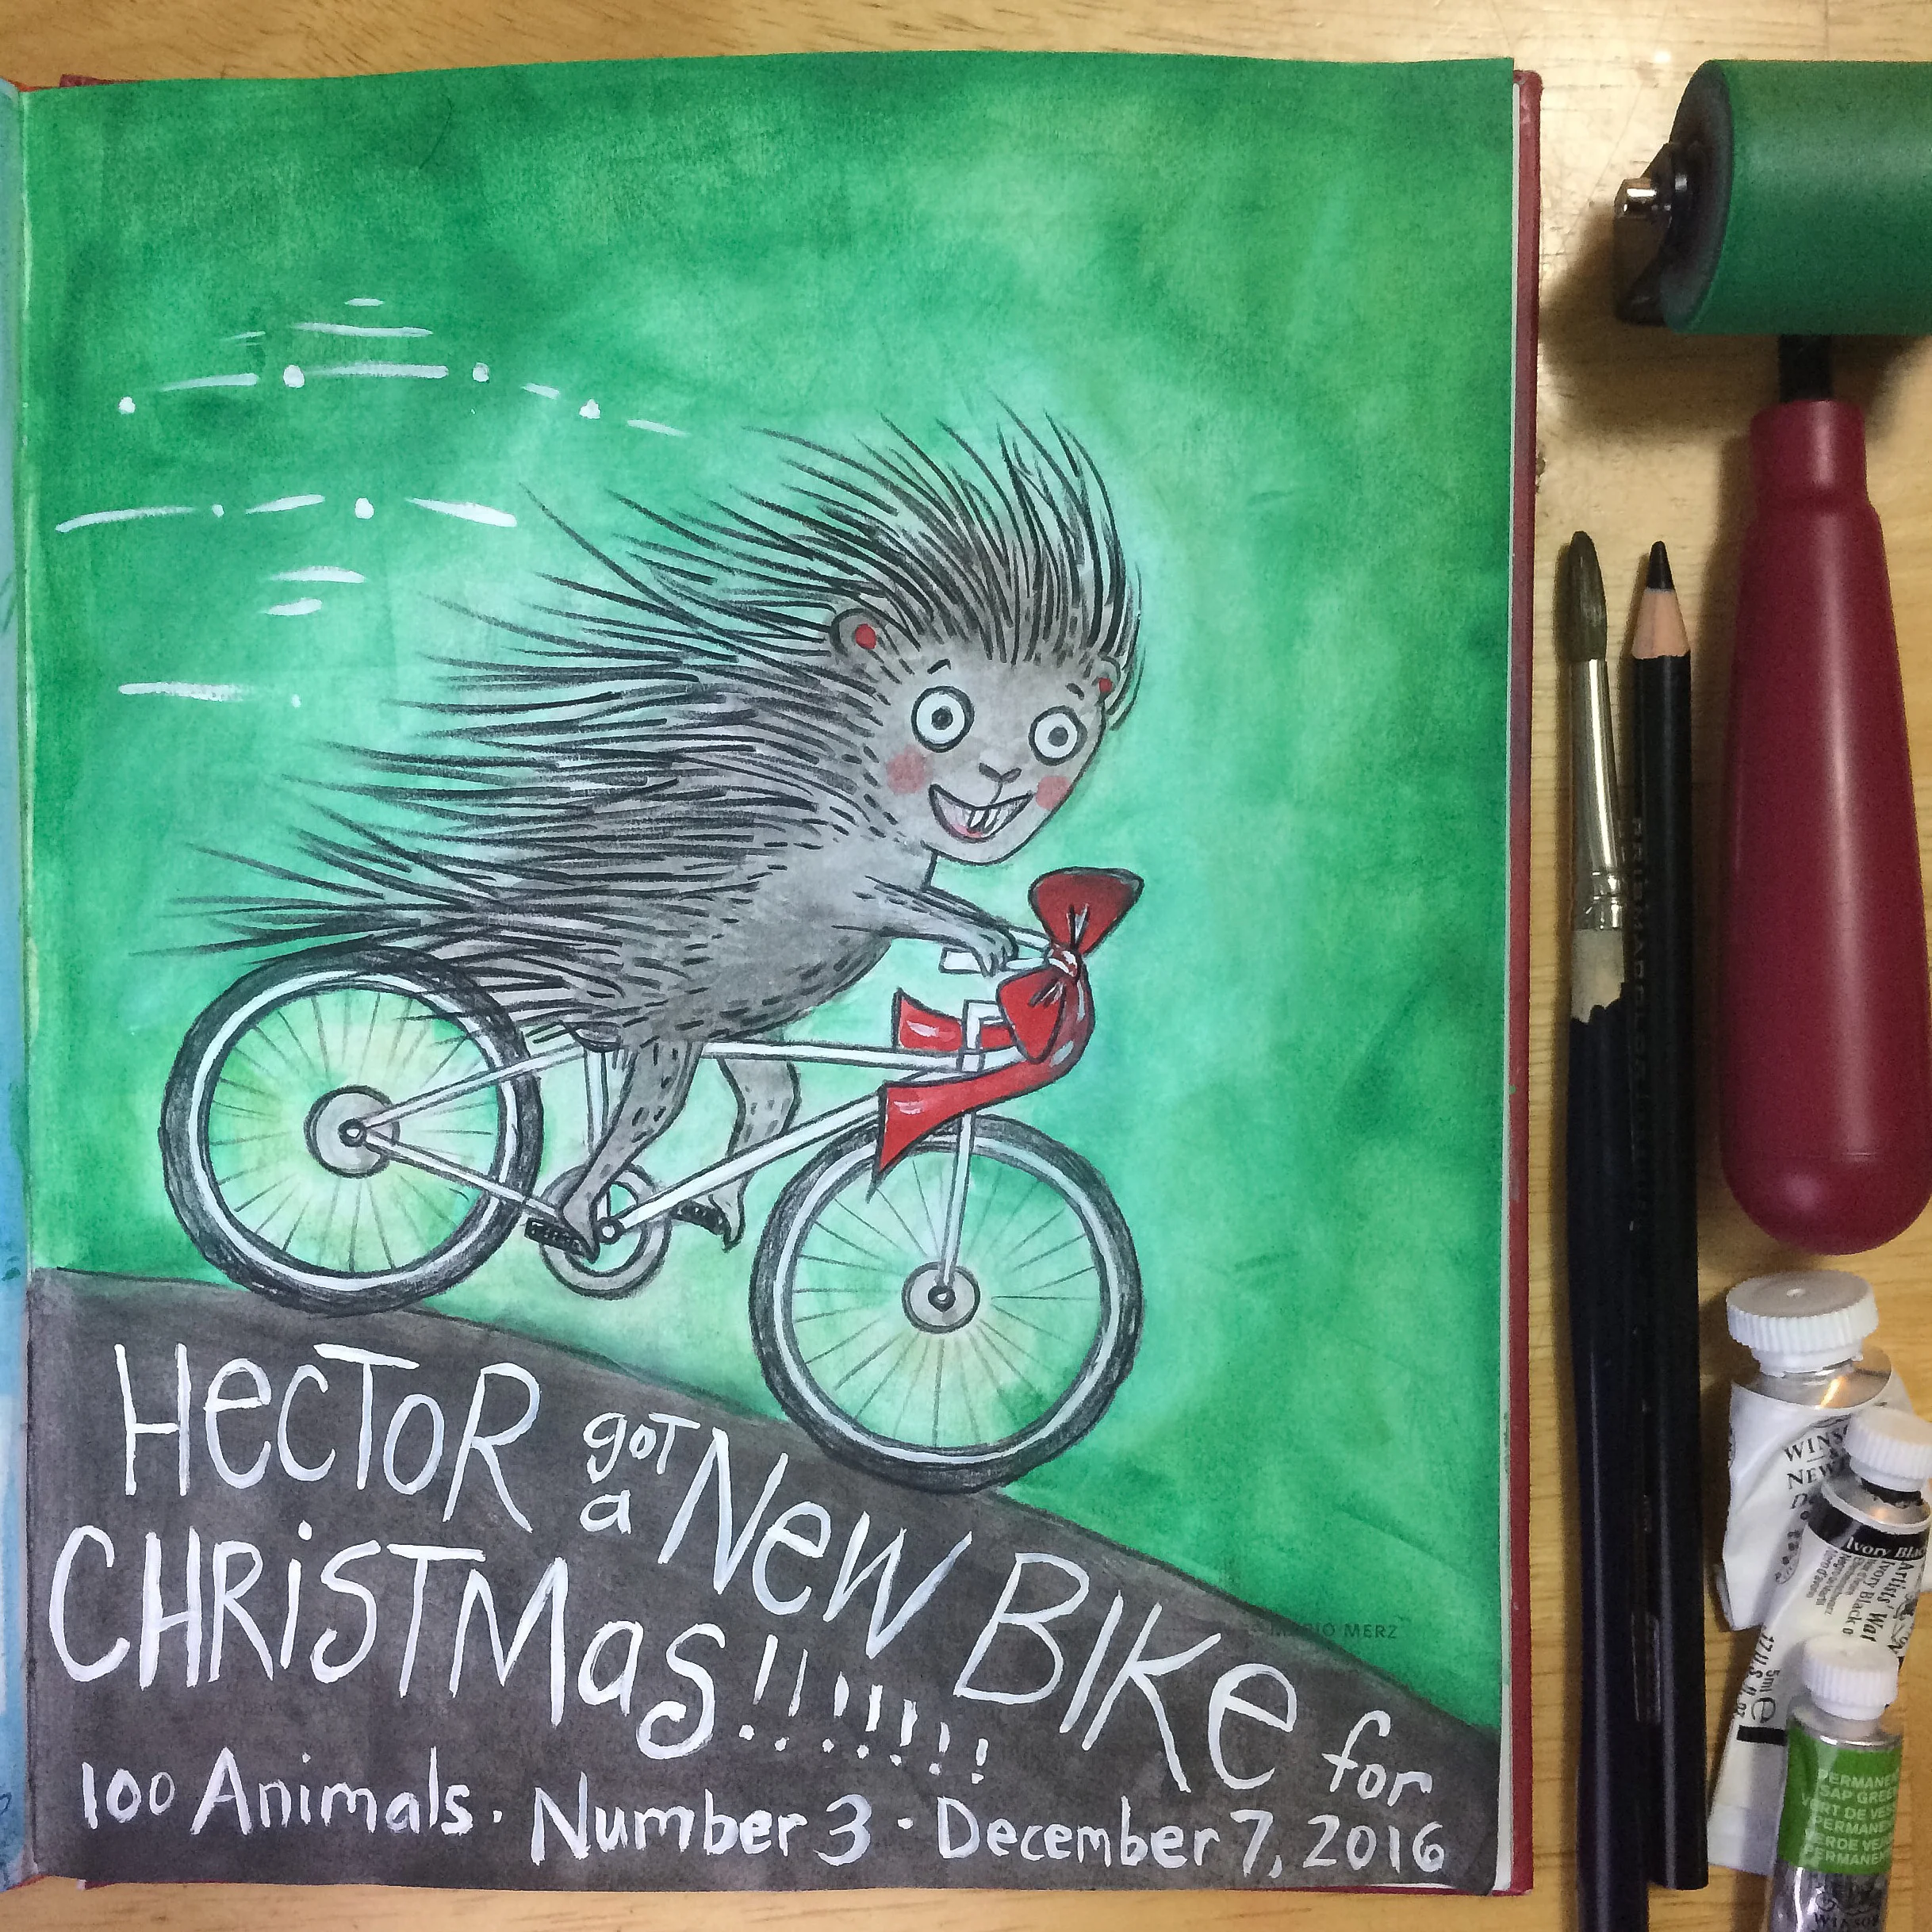 HECTOR got a New BIKe for
CHRiSTMas!!!!!!!
100 Animals · Number 3 · December 7, 2016
MERZ
WINS
NEW
Ivory Blac
Artists' Wat
Ivory Black
5ml e
PERMANEN
SAP GREE
VERT DE VES
PERMANEN
VERDE VEJ
PERMANEN
WINSOR